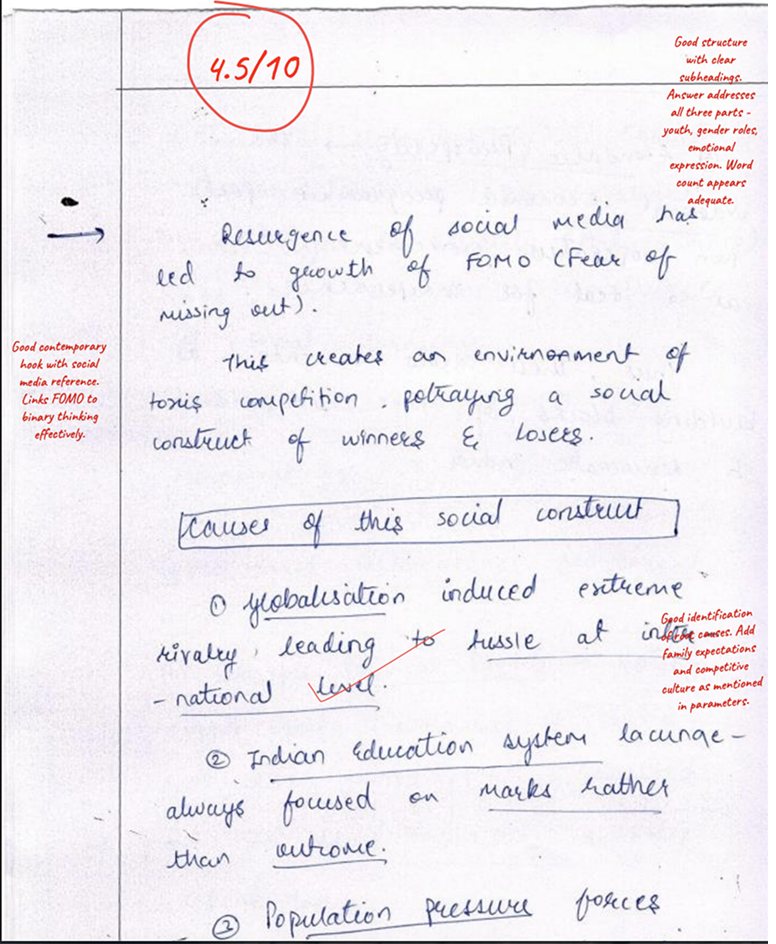 4.5/10
Good structure
with clear
subheadings.
Answer addresses
all three parts -
youth, gender roles,
emotional
expression. Word
count appears
adequate.
Resurgence of social media has
led to growth of FOMO (Fear of
missing out).
Good contemporary
hook with social
media reference.
Links FOMO to
binary thinking
effectively.
This creates an envirnonment of
toxis competition, potraying a social
construct of winners & losers.
Causes of this social construct
① globalisation induced extreme
rivalry, leading to tussle at inter
- national level.
Good identification
of root causes. Add
family expectations
and competitive
culture as mentioned
in parameters.
② Indian Education system lacunae -
always focused on marks rather
than outcome.
③ Population pressure forces